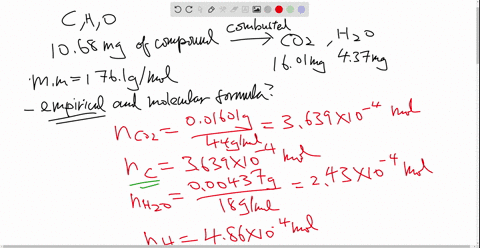 C, H, O
10.68 mg of compound combusted → CO2 , H2O
16.01mg 4.37mg
m.m = 176.1g/mol
- empirical and molecular formula?
nCO2 = 0.01601g / 44g/mol = 3.639×10⁻⁴ mol
nC = 3.639×10⁻⁴ mol
nH2O = 0.00437g / 18g/mol = 2.43×10⁻⁴ mol
nH = 4.86×10⁻⁴ mol